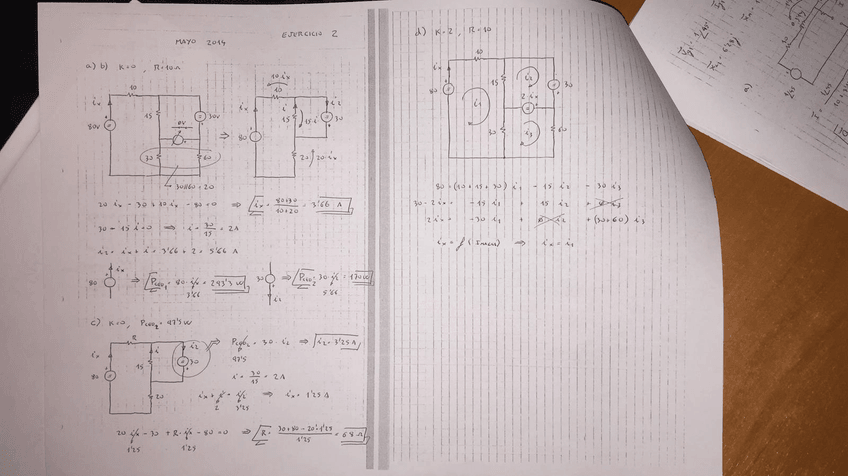 MAYO 2014 EJERCICIO 2
a) b) K=0 , R=10Ω
10
ix
80V
15
30V
0V
30
60
30||60=20
⇒
10 ix
10
ix
80
i
15
15·i
i2
30
20
20·ix
20 ix - 30 + 10 ix - 80 = 0 ⇒ ix = (80+30)/(10+20) = 3'66 A
30 - 15 i = 0 ⇒ i = 30/15 = 2A
i2 = ix + i = 3'66 + 2 = 5'66 A
80 ix ⇒ PCED1 = 80·ix = 293'3 W
3'66
30 i2 ⇒ PCED2 = 30·i2 = 170 W
5'66
c) K=0 , PCED2 = 97'5 W
R
ix
80
i
15
i2
30
20
⇒ PCED2 = 30·i2 ⇒ i2 = 3'25 A
97'5
i = 30/15 = 2A
ix + i = i2 ⇒ ix = 1'25 A
2 3'25
20 ix - 30 + R·ix - 80 = 0 ⇒ R = (30+80-20·1'25)/1'25 = 68 Ω
1'25 1'25
d) K=2 , R=10
10
ix
80
15
i2
30
i1
2·ix
30
i3
60
80 = (10+15+30) i1 - 15 i2 - 30 i3
30 - 2ix = -15 i1 + 15 i2
2ix = -30 i1 + (30+60) i3
ix = f (Incogs) ⇒ ix = i1